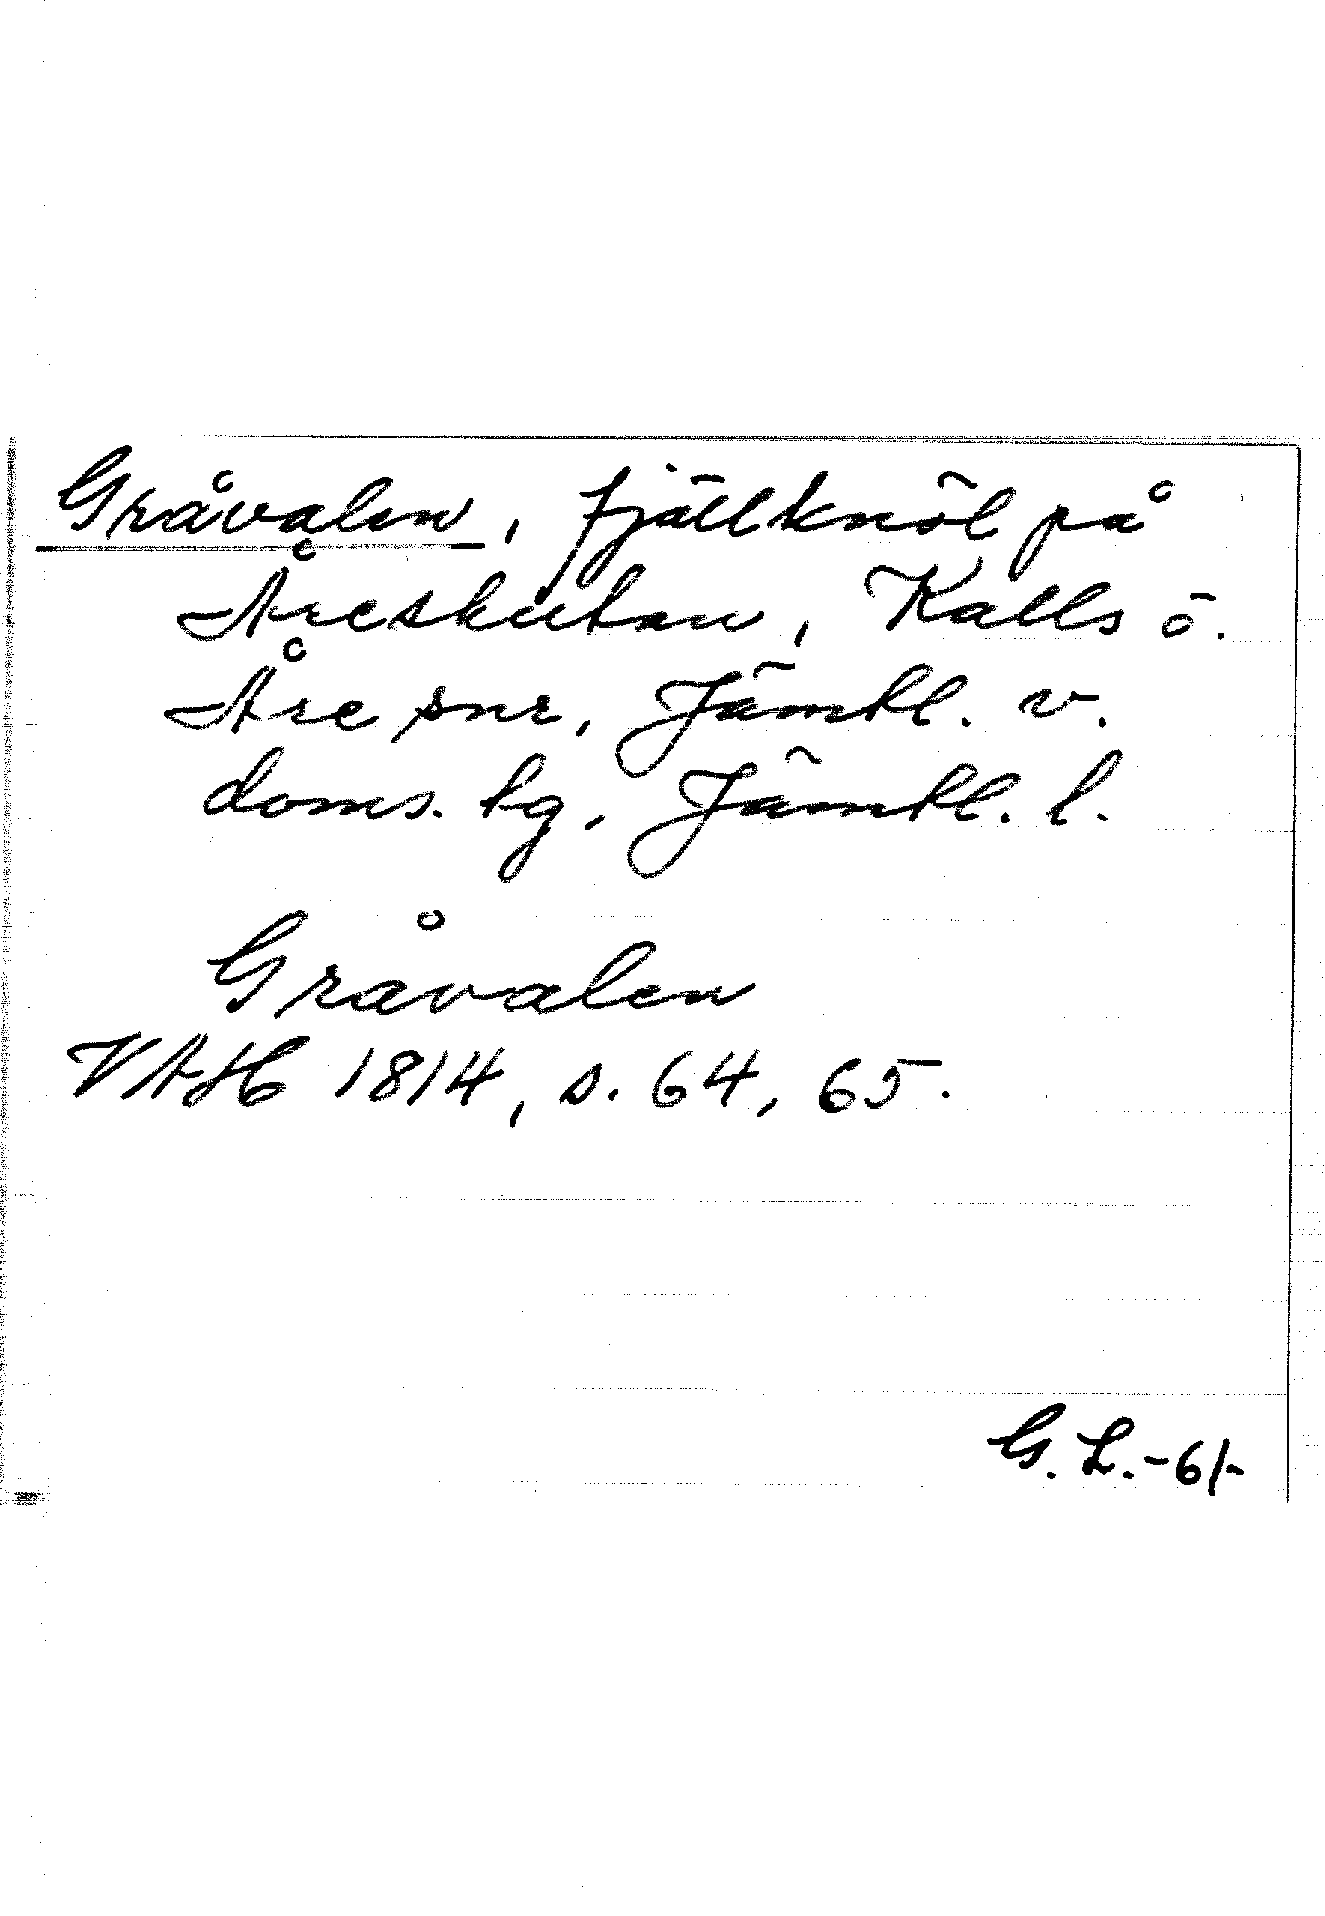 Gråvalen, fjällknöl på
Åreskutan, Kalls ö.
Åre snr, Jämtl. v.
doms. tg, Jämtl. l.
Gråvalen
VAH 1814, s. 64, 65.
G. L. -61-